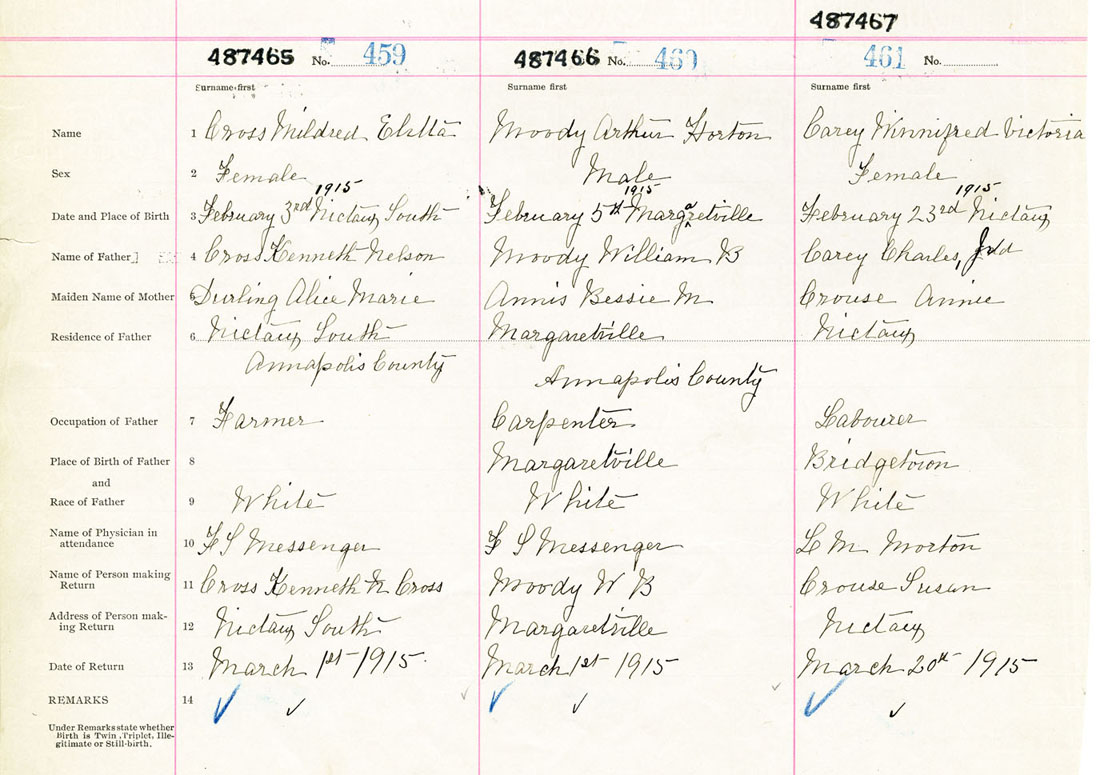 487467
487465 No. 459 487466 No. 460 461 No.
Surname first Surname first Surname first
Name 1 Cross Mildred Elstta Moody Arthur Horton Carey Winnifred Victoria
Sex 2 Female Male Female
1915 1915 1915
Date and Place of Birth 3 February 3rd Nictaux South February 5th Margaretville February 23rd Nictaux
Name of Father 4 Cross Kenneth Nelson Moody William B Carey Charles,
Maiden Name of Mother 5 Durling Alice Marie Annis Bessie M Crouse Annie
Residence of Father 6 Nictaux South Margaretville Nictaux
Annapolis County Annapolis County
Occupation of Father 7 Farmer Carpenter Labourer
Place of Birth of Father 8 Margaretville Bridgetown
and
Race of Father 9 White White White
Name of Physician in
attendance 10 F S Messenger F S Messenger L M Morton
Name of Person making
Return 11 Cross Kenneth N Cross Moody W B Crouse Susan
Address of Person mak-
ing Return 12 Nictaux South Margaretville Nictaux
Date of Return 13 March 1st 1915. March 1st 1915 March 20th 1915
REMARKS 14
Under Remarks state whether
Birth is Twin, Triplet, Ille-
gitimate or Still-birth.